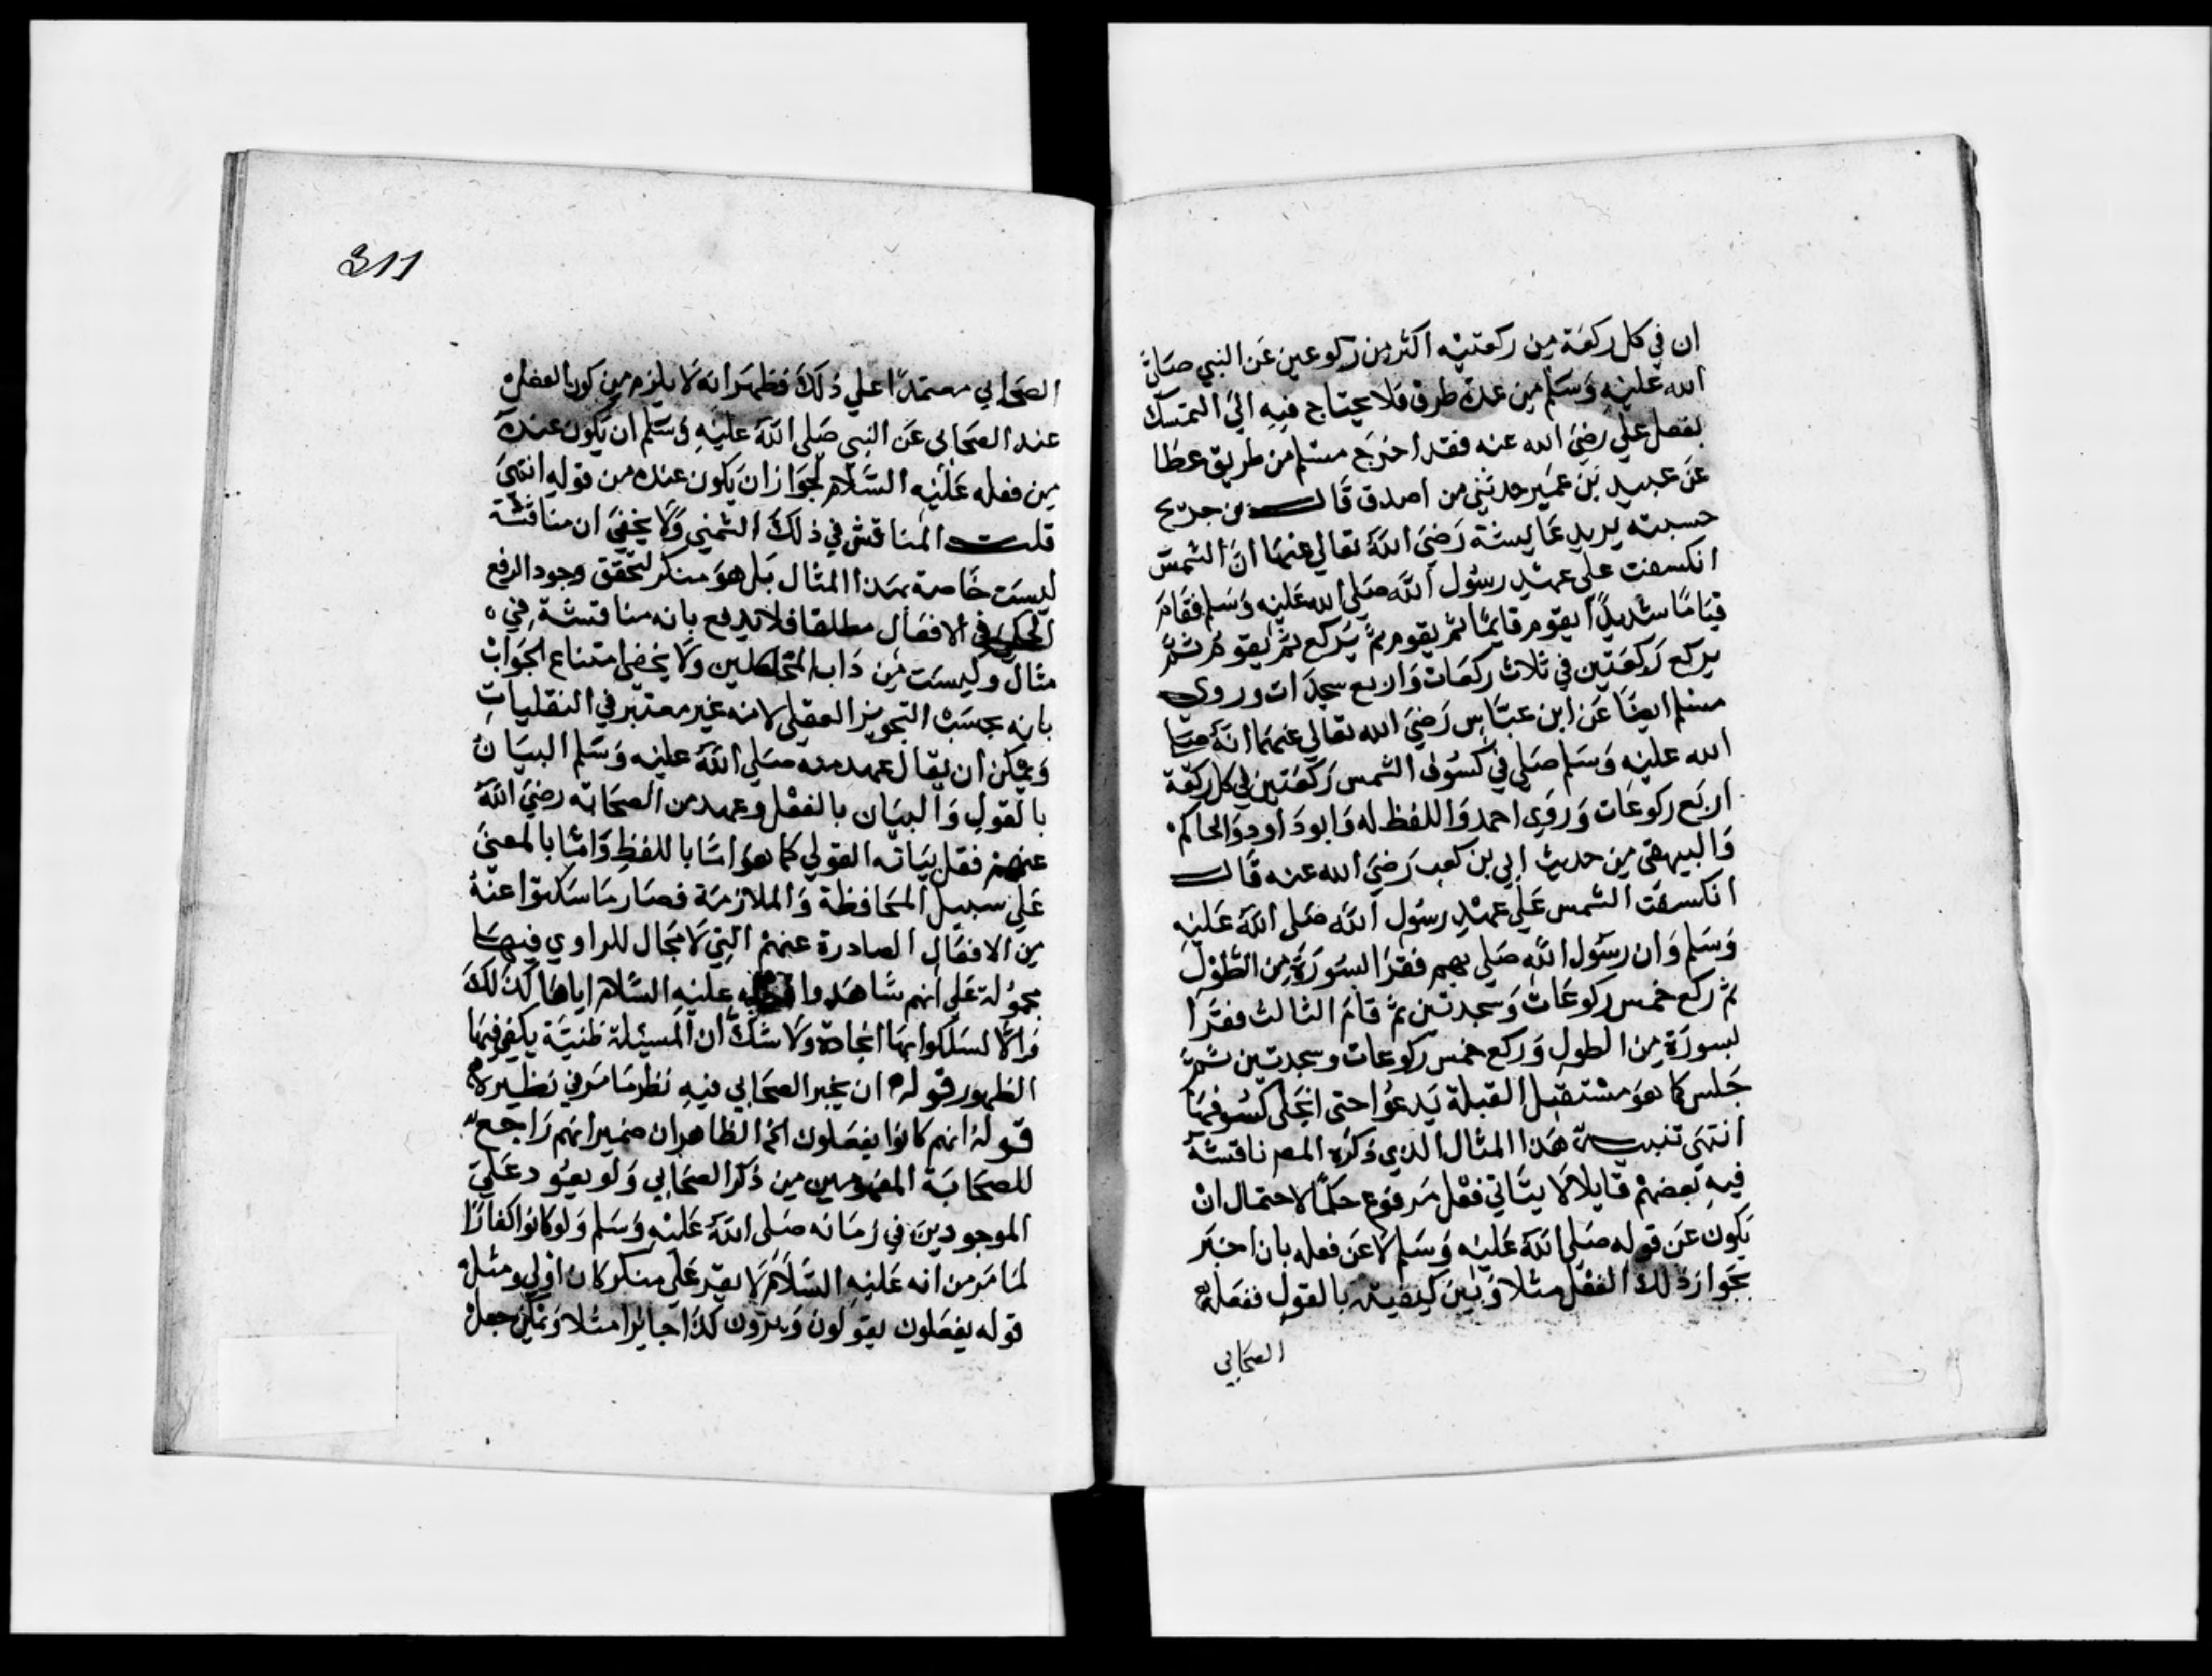 ان في كل ركعة من ركعتيه اكثر من ركوعين عن النبي صلى
الله عليه وسلم من عدة طرق فلا يحتاج فيه الي التمسك
بفعل علي رضي الله عنه فقد اخرج مسلم من طريق عطا
عن عبيد بن عمير حدثني من اصدق قال بن جريج
حسبته يريد عايشة رضي الله تعالي عنها ان الشمس
انكسفت على عهد رسول الله صلى الله عليه وسلم فقام
قياما شديدا يقوم قايما ثم يقوم ثم يركع ثم يقوم ثم
يركع ركعتين في ثلاث ركعات واربع سجدات وروى
مسلم ايضا عن ابن عباس رضي الله تعالي عنهما انه صلى
الله عليه وسلم صلي في كسوف الشمس ركعتين في كل ركعة
اربع ركوعات وروي احمد واللفظ له وابو داود والحاكم
والبيهقي من حديث ابي بن كعب رضي الله عنه قال
انكسفت الشمس علي عهد رسول الله صلى الله عليه
وسلم وان رسول الله صلي بهم فقرا بسورة من الطول
ثم ركع خمس ركوعات وسجدتين ثم قام الثالث فقرا
بسورة من الطول وركع خمس ركوعات وسجدتين ثم
جلس كما هو مستقبل القبلة يدعوا حتى انجلى كسوفها
انتهى تنبيه هذا المثال الذي ذكره المصر ناقشه
فيه بعضهم قايلا لا يتاتي فعل مرفوع حكما لاحتمال ان
يكون عن قوله صلي الله عليه وسلم لا عن فعله بان اخبر
بجواز ذلك الفعل مثلا وبين كيفيته بالقول ففعله
الصحابي
311
الصحابي معتمدا علي ذلك فظهر انه لا يلزم من كون الفعل
عند الصحابى عن النبي صلى الله عليه وسلم ان يكون عنده
من فعله عليه السلام لجواز ان يكون عنده من قوله انتهى
قلت المناقش في ذلك الشمني ولا يخفى ان مناقشته
ليست خاصة بهذا المثال بل هو منكر لتحقق وجود الرفع
الحكمي في الافعال مطلقا فلا يدفع بانه مناقشة في
مثال وليست من داب المحصلين ولا يخفى امتناع الجواب
بانه بحسب التجويز العقلي لانه غير معتبر في النقليات
ويمكن ان يقال عهد منه صلي الله عليه وسلم البيان
بالقول والبيان بالفعل وعهد من الصحابة رضي الله
عنهم فقل بيانه القولي كما هو اما باللفظ واما بالمعنى
علي سبيل المحافظة والملازمة فصار ما سكتوا عنه
من الافعال الصادرة عنهم التي لا مجال للراوي فيها
محمولة علي انهم شاهدوا عليه السلام اياها كذلك
والا لسلكوا بها الجادة ولا شك ان المسئلة ظنية يكفي فيها
الظهور قوله ان يخبر الصحابي فيه نظر ما مر في نظيره
قوله انهم كانوا يفعلون الخ الظاهر ان ضمير انهم راجع
للصحابة المفهومين من ذكر الصحابي ولو يعود علي
الموجودين في زمانه صلى الله عليه وسلم ولو كانوا كفارا
لما مر من انه عليه السلام لا يقر علي منكر كان اولي ومثل
قوله يفعلون يقولون ويرون كذا جائزا مثلا ويمكن جعل